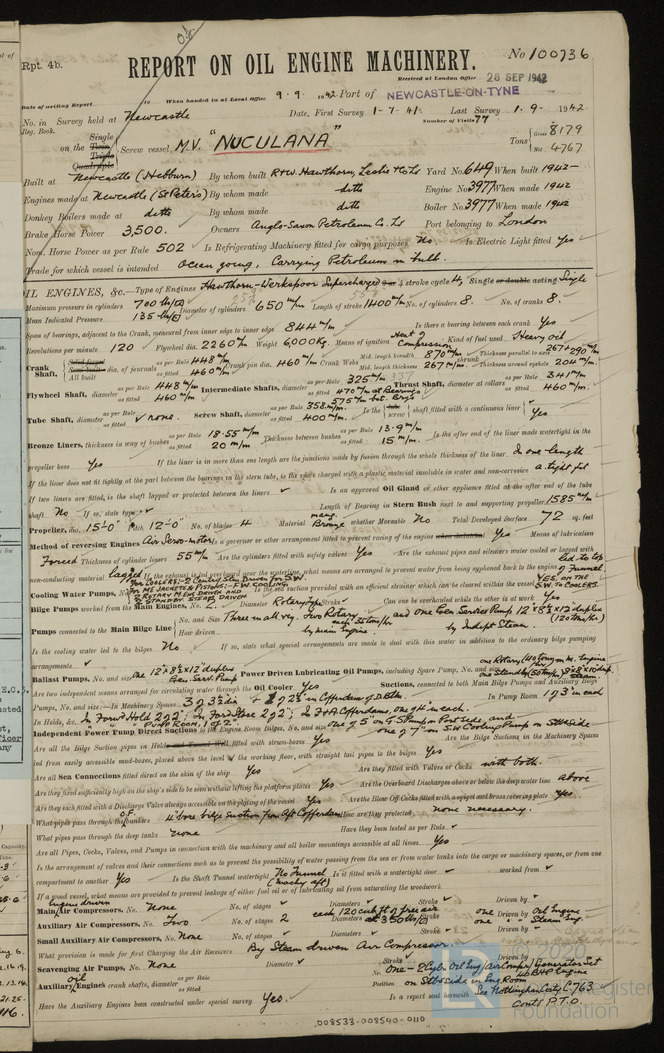 Rpt. 4b.
REPORT ON OIL ENGINE MACHINERY.
No 100736
Received at London Office 28 SEP 1942
Date of writing Report 19 When handed in at Local Office 9 . 9 . 1942 Port of NEWCASTLE-ON-TYNE
No. in Survey held at Newcastle Date, First Survey 1-7-41 Last Survey 1.9. 1942
Reg. Book. Number of Visits 77
on the Single Twin Triple Quadruple Screw vessel M.V. "NUCULANA" Tons Gross 8179 Net 4767
Built at Newcastle (Hebburn) By whom built R+W. Hawthorn, Leslie & Co Ld Yard No. 649 When built 1942
Engines made at Newcastle (St Peter's) By whom made ditto Engine No 3977 When made 1942
Donkey Boilers made at ditto By whom made ditto Boiler No 3977 When made 1942
Brake Horse Power 3,500. Owners Anglo-Saxon Petroleum Co. Ld Port belonging to London
Nom. Horse Power as per Rule 502 Is Refrigerating Machinery fitted for cargo purposes No. Is Electric Light fitted Yes
Trade for which vessel is intended Ocean going, Carrying Petroleum in bulk.
OIL ENGINES, &c. Type of Engines Hawthorn-Werkspoor Supercharged 2 or 4 stroke cycle 4 Single or double acting Single
Maximum pressure in cylinders 700 lb/□ Diameter of cylinders 650 m/m Length of stroke 1400 m/m No. of cylinders 8. No. of cranks 8.
Mean Indicated Pressure 135 lb/□
Span of bearings, adjacent to the Crank, measured from inner edge to inner edge 844 m/m Is there a bearing between each crank Yes
Revolutions per minute 120 Flywheel dia. 2260 m/m Weight 6,000 Kg. Means of ignition Heat of Compression Kind of fuel used Heavy oil
Crank Shaft, Solid forged Semi built All built dia. of journals as per Rule 448 m/m as fitted 460 m/m Crank pin dia. 460 m/m Crank Webs Mid. length breadth 870 m/m Mid. length thickness 267 m/m shrunk Thickness parallel to axis 267 + 290 m/m Thickness around eyehole 204 m/m
Flywheel Shaft, diameter as per Rule 448 m/m as fitted 460 m/m Intermediate Shafts, diameter as per Rule 325 m/m as fitted 470 m/m at Bearings 375 m/m bet. Brgs Thrust Shaft, diameter at collars as per Rule 341 m/m as fitted 460 m/m
Tube Shaft, diameter as per Rule as fitted none. Screw Shaft, diameter as per Rule 358 m/m as fitted 400 m/m. Is the tube screw shaft fitted with a continuous liner Yes
Bronze Liners, thickness in way of bushes as per Rule 18.55 m/m as fitted 20 m/m Thickness between bushes as per Rule 13.9 m/m as fitted 15 m/m. Is the after end of the liner made watertight in the
propeller boss Yes If the liner is in more than one length are the junctions made by fusion through the whole thickness of the liner In one length
If the liner does not fit tightly at the part between the bearings in the stern tube, is the space charged with a plastic material insoluble in water and non-corrosive a tight fit
If two liners are fitted, is the shaft lapped or protected between the liners Is an approved Oil Gland or other appliance fitted at the after end of the tube
shaft No If so, state type Length of Bearing in Stern Bush next to and supporting propeller 1585 m/m
Propeller, dia. 15'-0" Pitch 12'-0" No. of blades 4 Material Mang. Bronze whether Moveable No Total Developed Surface 72 sq. feet
Method of reversing Engines Air Servo-motor Is a governor or other arrangement fitted to prevent racing of the engine when declutched Yes Means of lubrication
Forced Thickness of cylinder liners 55 m/m Are the cylinders fitted with safety valves Yes Are the exhaust pipes and silencers water cooled or lagged with
non-conducting material lagged If the exhaust is led overboard near the waterline, what means are arranged to prevent water from being syphoned back to the engine led to top of Funnel.
Cooling Water Pumps, No. Is the sea suction provided with an efficient strainer which can be cleared within the vessel YES, ON THE S.W. TO COOLERS.
Bilge Pumps worked from the Main Engines, No. 2. Diameter Rotary type Stroke Can one be overhauled while the other is at work Yes
Pumps connected to the Main Bilge Line No. and Size Three in all, viz, Two Rotary each 35 tons/hr and One Gen Service Pump 12" x 8½" x 12" duplex (120 tons/hr)
How driven by main Engine. by Indept Steam.
Is the cooling water led to the bilges No If so, state what special arrangements are made to deal with this water in addition to the ordinary bilge pumping
arrangements
Ballast Pumps, No. and size One 12" x 8½" x 12" duplex Gen. Serv. Pump Power Driven Lubricating Oil Pumps, including Spare Pump, No. and size One Rotary (40 tons) on M. Engine One Standby (50 tons/hr) Steam
Are two independent means arranged for circulating water through the Oil Cooler Yes Suctions, connected to both Main Bilge Pumps and Auxiliary Bilge
Pumps, No. and size:—In Machinery Spaces 3 of 3½ dia + 2 of 2½ in Cofferdams of D. Btm. In Pump Room 1 of 3" in each
In Holds, &c. In Forwd Hold 2 of 2"; In Forwd Store 2 of 2"; In F & A Cofferdams, one of 4" in each.
Independent Power Pump Direct Suctions to the Engine Room Bilges, No. and size One of 5" on G.S. Pump on Port side, and one of 7" on S.W. Cooling Pump on Stbd side
Are all the Bilge Suction pipes in Holds and Tunnel Well fitted with strum-boxes Yes Are the Bilge Suctions in the Machinery Spaces
led from easily accessible mud-boxes, placed above the level of the working floor, with straight tail pipes to the bilges Yes
Are all Sea Connections fitted direct on the skin of the ship Yes Are they fitted with Valves or Cocks with both.
Are they fixed sufficiently high on the ship's side to be seen without lifting the platform plates Yes Are the Overboard Discharges above or below the deep water line above
Are they each fitted with a Discharge Valve always accessible on the plating of the vessel Yes Are the Blow Off Cocks fitted with a spigot and brass covering plate Yes.
What pipes pass through the bunkers O.F. 4" bore bilge suction from Aft Cofferdam How are they protected none necessary.
What pipes pass through the deep tanks none Have they been tested as per Rule
Are all Pipes, Cocks, Valves, and Pumps in connection with the machinery and all boiler mountings accessible at all times Yes.
Is the arrangement of valves and their connections such as to prevent the possibility of water passing from the sea or from water tanks into the cargo or machinery spaces, or from one
compartment to another Yes Is the Shaft Tunnel watertight No Tunnel (machy aft) Is it fitted with a watertight door worked from
If a wood vessel, what means are provided to prevent leakage of either fuel oil or lubricating oil from saturating the woodwork
Main Engine driven Air Compressors, No. None No. of stages Diameters Stroke Driven by
Auxiliary Air Compressors, No. Two No. of stages 2 Diameters each 120 cub ft of free air at 350 lbs/□ Stroke Driven by one Oil Engine one Steam Eng.
Small Auxiliary Air Compressors, No. None No. of stages Diameters Stroke Driven by
What provision is made for first Charging the Air Receivers By Steam driven Air Compressor.
Scavenging Air Pumps, No. None Diameter Stroke
Auxiliary oil Engines crank shafts, diameter as per Rule as fitted No. One - 2 Cylr Oil Eng/Air Compr/Generator Set 46 BHP Engine
Position on Stbd side in Eng. Room
Have the Auxiliary Engines been constructed under special survey Yes. Is a report sent herewith See Nottingham Certy C.763
Contd P.T.O.
008533-008540-0110
Foundation